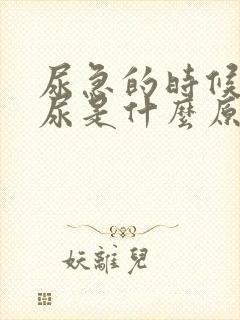 尿急的時候
尿是什麼原
妖離兒